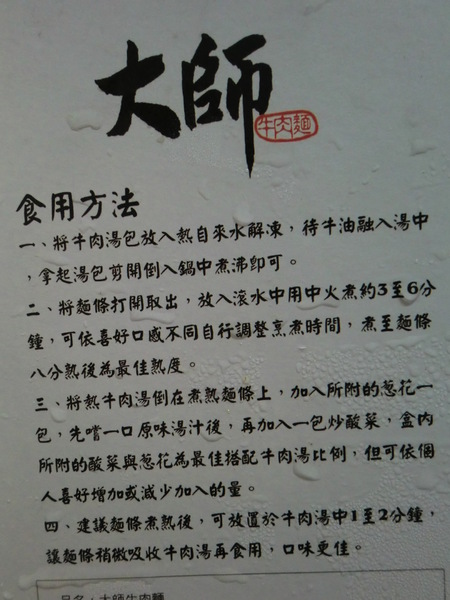 大師
牛肉麵
食用方法
一、將牛肉湯包放入熱自來水解凍，待牛油融入湯中
，拿起湯包剪開倒入鍋中煮沸即可。
二、將麵條打開取出，放入滾水中用中火煮約3至6分
鐘，可依喜好口感不同自行調整烹煮時間，煮至麵條
八分熟後為最佳熟度。
三、將熱牛肉湯倒在煮熟麵條上，加入所附的蔥花一
包，先嚐一口原味湯汁後，再加入一包炒酸菜，盒內
所附的酸菜與蔥花為最佳搭配牛肉湯比例，但可依個
人喜好增加或減少加入的量。
四、建議麵條煮熟後，可放置於牛肉湯中1至2分鐘，
讓麵條稍微吸收牛肉湯再食用，口味更佳。
品名：大師牛肉麵